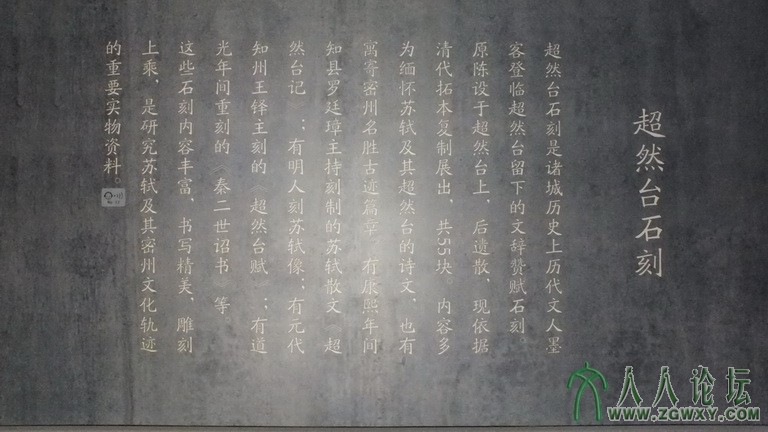 超然台石刻
超然台石刻是诸城历史上历代文人墨
客登临超然台留下的文辞赞赋石刻。
原陈设于超然台上，后遗散，现依据
清代拓本复制展出，共55块。内容多
为缅怀苏轼及其超然台的诗文，也有
寓寄密州名胜古迹篇章。有康熙年间
知县罗廷璋主持刻制的苏轼散文《超
然台记》；有明人刻苏轼像；有元代
知州王铎主刻的《超然台赋》；有道
光年间重刻的《秦二世诏书》等。
这些石刻内容丰富、书写精美、雕刻
上乘，是研究苏轼及其密州文化轨迹
的重要实物资料。
人人论坛
www.zgwxy.com